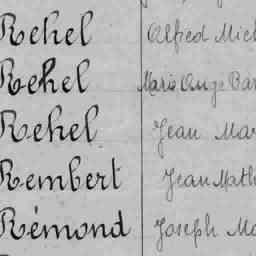 Rehel Alfred Mich
Rehel Marie Ange Bar
Rehel Jean Mar
Rembert Jean Math
Rémond Joseph Ma